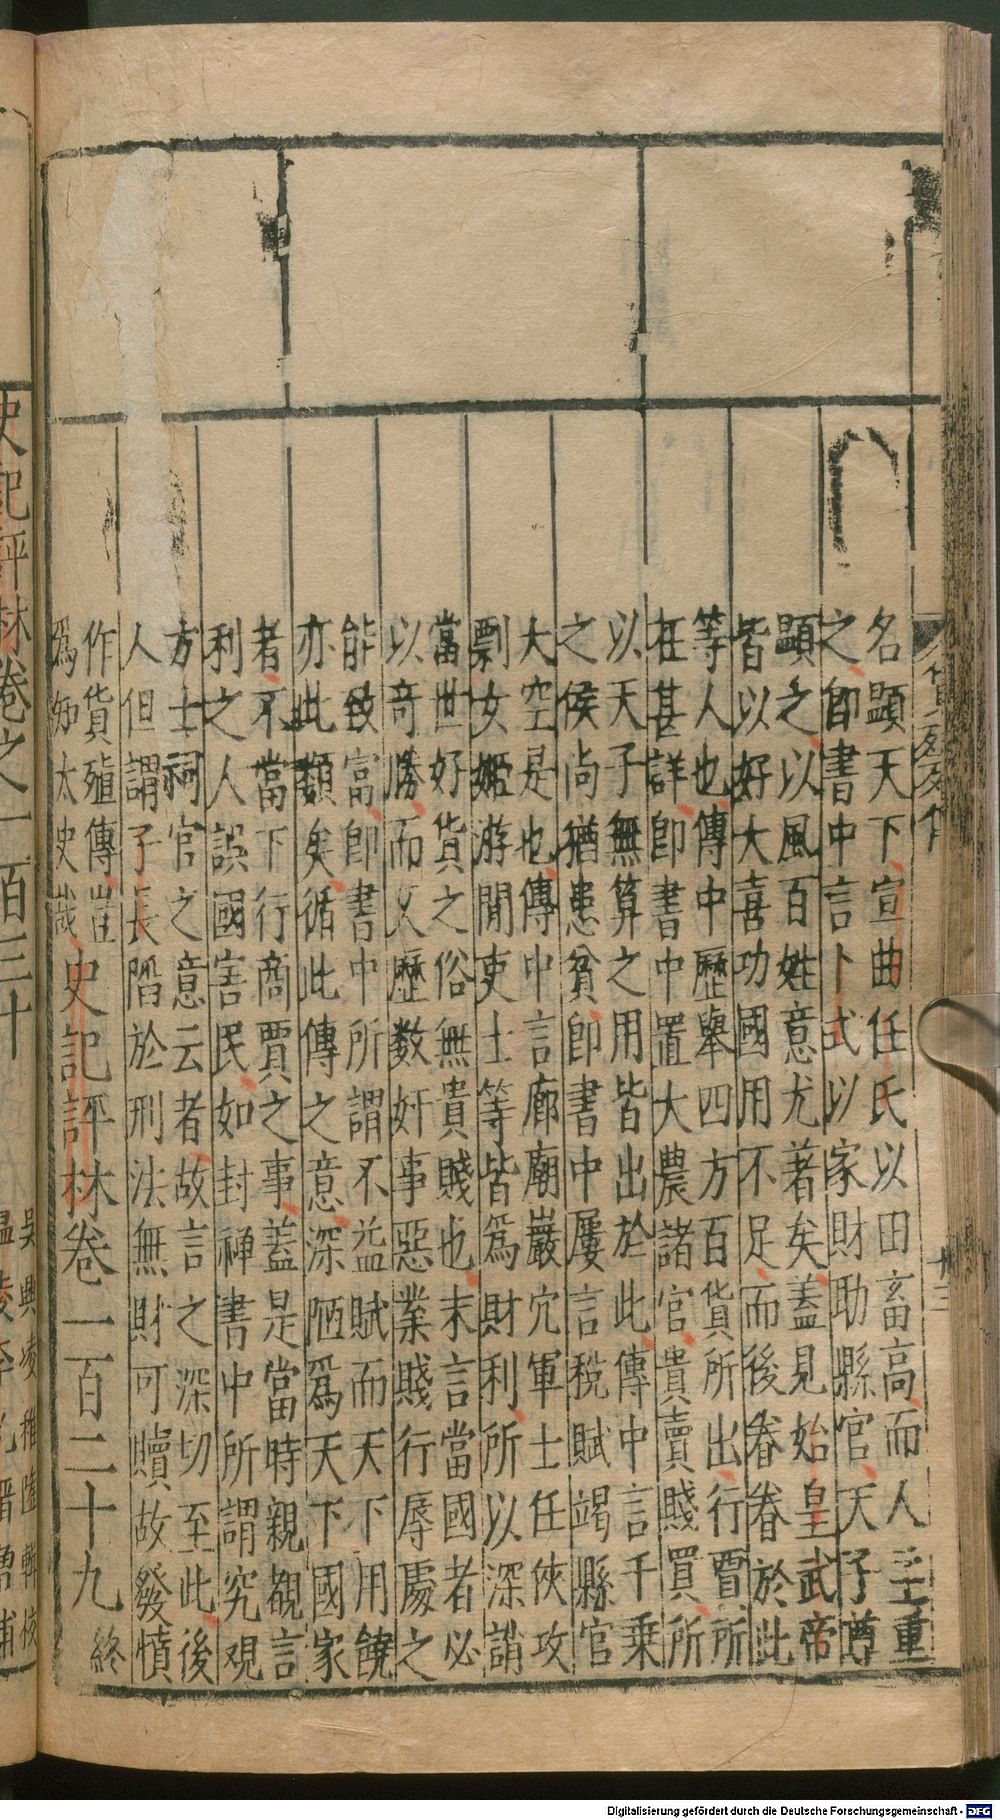 貨殖列傳
名顯天下宣曲任氏以田畜高而人主重
之卽書中言卜式以家財助縣官天子尊
顯之以風百姓意尤著矣蓋見始皇武帝
皆以好大喜功國用不足而後眷眷於此
等人也傳中歷舉四方百貨所出行賈所
在甚詳卽書中置大農諸官貴賣賤買所
以天子無算之用皆出於此傳中言千乘
之侯尚猶患貧卽書中屢言稅賦竭縣官
大空是也傳中言廊廟巖穴軍士任俠攻
剽女姬游閒吏士等皆爲財利所以深誚
當世好貨之俗無貴賤也末言當國者必
以奇勝而又歷數奸事惡業賤行辱處之
能致富卽書中所謂不益賦而天下用饒
亦此類矣循此傳之意深陋爲天下國家
者不當下行商賈之事蓋是當時親覩言
利之人誤國害民如封禪書中所謂究觀
方士祠官之意云者故言之深切至此後
人但謂子長陷於刑法無財可贖故發憤
作貨殖傳豈
爲知太史哉
史記評林卷一百二十九 終
史記評林卷之一百三十
吳興凌稚隆輯校
溫陵李光縉增補
Digitalisierung gefördert durch die Deutsche Forschungsgemeinschaft - DFG